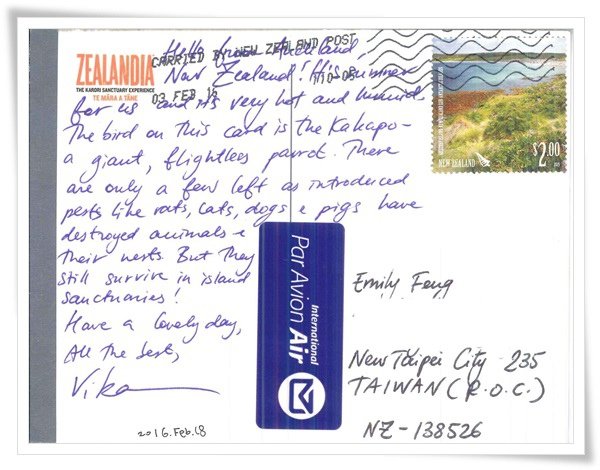 ZEALANDIA
THE KARORI SANCTUARY EXPERIENCE
TE MĀRA A TĀNE
CARRIED BY NEW ZEALAND POST
03 FEB 16
Hello from Auckland,
New Zealand! It's summer
for us and it's very hot and humid.
The bird on this card is the Kakapo -
a giant, flightless parrot. There
are only a few left as introduced
pests like rats, cats, dogs & pigs have
destroyed animals &
their nests. But They
still survive in island
sanctuaries!
Have a lovely day,
All the best,
Vika
2016.Feb.18
$2.00
NEW ZEALAND
Par Avion Air
International
Emily Feng
New Taipei City 235
TAIWAN (R.O.C.)
NZ-138526